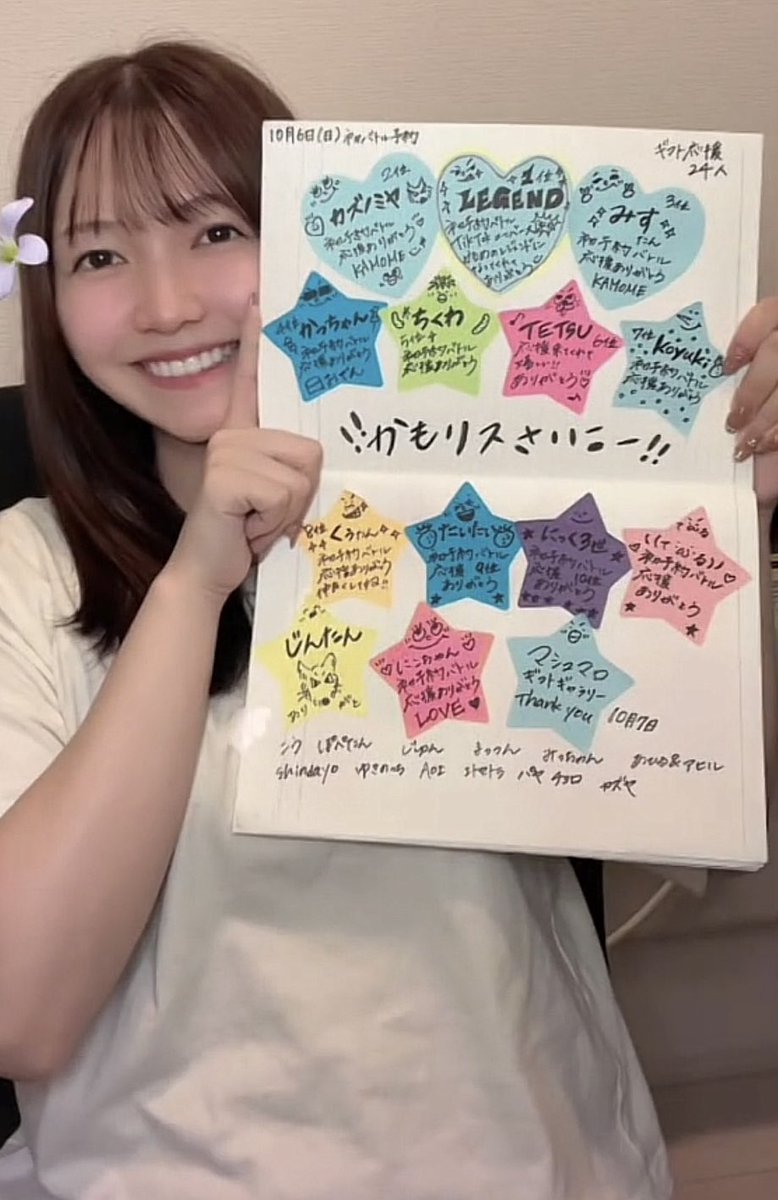 10月6日(日) 初バトル予約
ギフト応援
24人
2位
カズノミヤ
初予約バトル
応援ありがとう
KAMOME
1位
LEGEND
初予約バトル
ありがとう
3位
みす
たん
初予約バトル
応援ありがとう
KAMOME
4位
かっちゃん
初予約バトル
応援ありがとう
ちくわ
5位
初予約バトル
応援ありがとう
TETSU
6位
応援来てくれて
ありがとう♡
7位
koyuki
初予約バトル
応援ありがとう
!!かもりスさいこー!!
8位
くぅたん
初予約バトル
応援ありがとう
だいたい
初予約バトル
応援 9位
ありがとう
にっく3世
初予約バトル
応援 10位
ありがとう
初予約バトル
応援
ありがとう
じんたん
にこちゃん
初予約バトル
応援ありがとう
LOVE♥
マシュマロ
ギフトギャラリー
Thank you
10月7日
じゅん よっつん みっちゃん
shindayo ゆきのっち AOI パヤ チョロ カズヤ